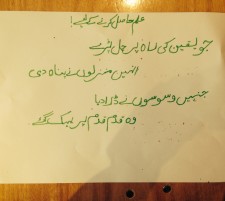 علم حاصل کرنے کے لیے!
جو یقین کی راہ پر چل پڑے
انہیں منزلوں نے پناہ دی
جنہیں وسوسوں نے ڈرا دیا
وہ قدم قدم پر بہک گئے